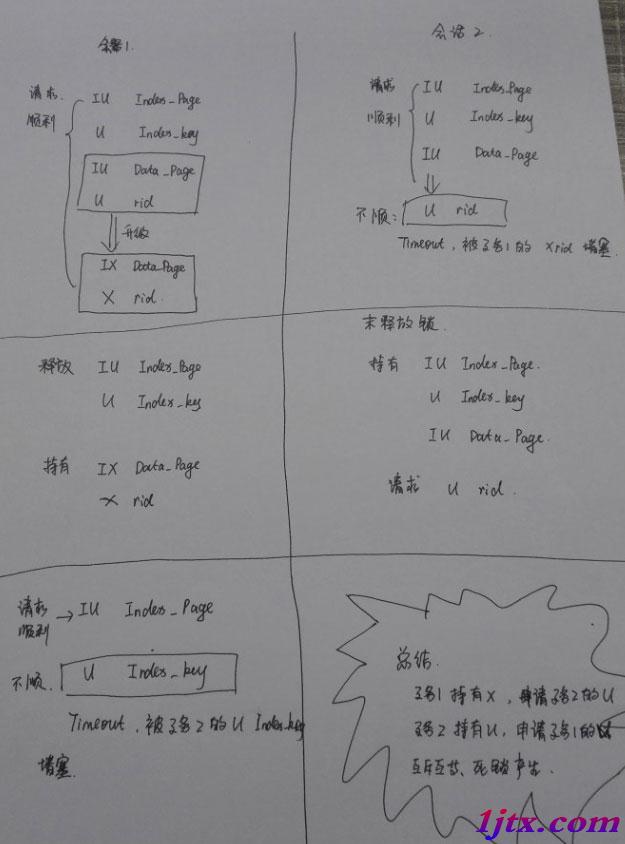 会话1.
请求
顺利
IU Index_Page
U Index_key
IU Data_Page
U rid
升级
IX Data_Page
X rid.
会话2.
请求
顺利
IU Index_Page
U Index_key
IU Data_Page
不顺: U rid
Timeout, 被子务1的 X rid 堵塞.
释放 IU Index_Page
U Index_key
持有 IX Data_Page
X rid
未释放锁.
持有 IU Index_Page.
U Index_key
IU Data_Page.
请求 U rid.
请求
顺利
→ IU Index_Page
不顺. U Index_key
Timeout, 被子务2的 U Index_key
堵塞.
总结.
持有X, 申请
持有U, 申请
死锁产生.
1jtx.com